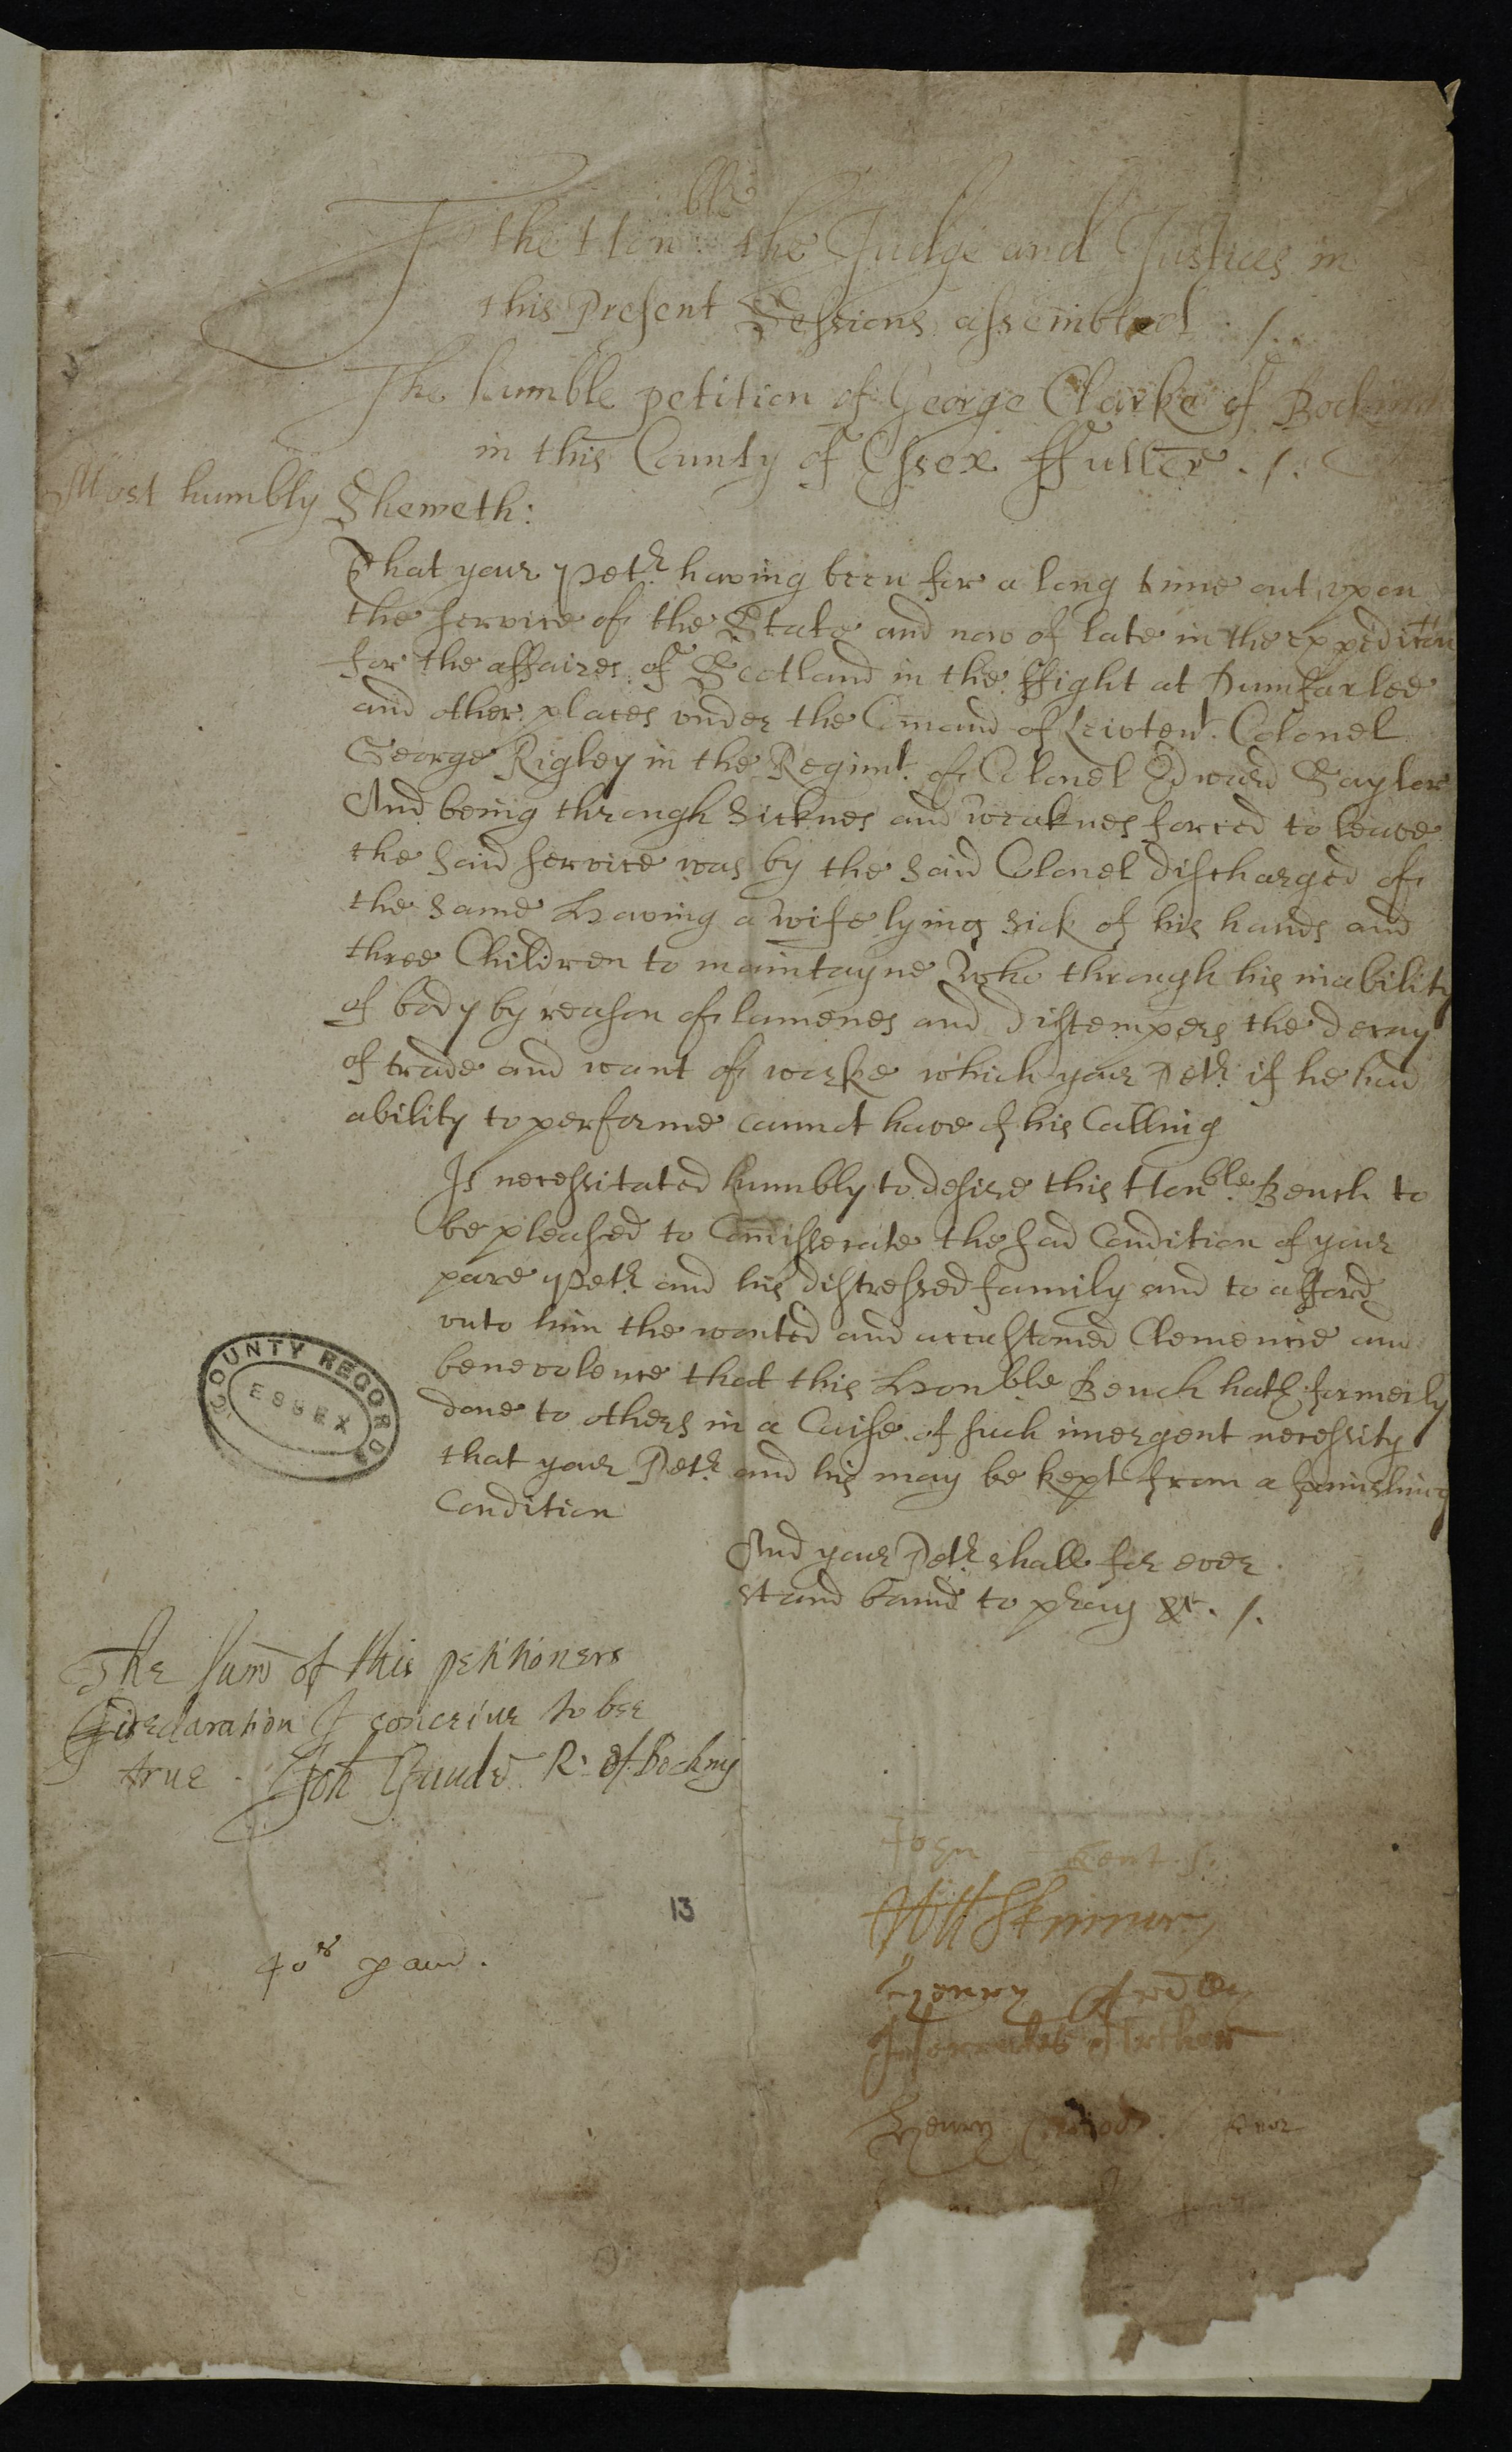 To the Honble the Judge and Justices in
this Present Sessions assembled ./.
The humble petition of George Clarke of Bocking
in this County of Essex ffuller ./.
Most humbly Sheweth:
That your Petr having been for a long time out vpon
the service of the State and now of late in the expedition
for the affaires of Scotland in the ffight at Dumfarlee
and other places vnder the Comand of Leivtent Colonel
George Rigley in the Regimt of Colonel Edward Saylor
And being through Sicknes and weaknes forced to leave
the said service was by the said Colonel discharged of
the same Having a wife lying sick of his hands and
three Children to maintayne Who through his inability
of body by reason of lamenes and distempers the decay
of trade and want of worke which your Petr if he had
ability to performe cannot have of his Calling
Is necessitated humbly to desire this Honble Bench to
be pleased to Comisserate the sad Condition of your
pore Petr and his distressed family and to afford
vnto him the wonted and accustomed Clemencie and
benevolence that this Honble Bench hath formerly
done to others in a Caise of such imergent necessity
that your Petr and his may be kept from a famishing
Condition
And your Petr shall for ever
stand bound to pray &c ./.
The sum of this petitioners
declaration I conceive to bee
true Joh Gauden R. of Bocking
COUNTY RECORDS
ESSEX
John Kent
Will Skinner
13
40s paid.
Henry
Henry